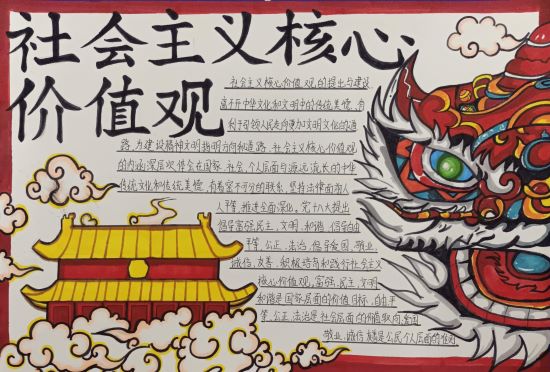 社会主义核心
价值观
社会主义核心价值观的提出与建设
离不开中华文化和文明中的传统美德,有
利于引领人民走向更加文明文化的道
路,为建设精神文明指明方向和道路,社会主义核心价值观
的内涵深层次体会在国家,社会,个人层面与源远流长的中华
传统文化和传统美德,有着密不可分的联系,坚持法律面前人
人平等,推进全面深化,党十八大提出
倡导富强,民主,文明,和谐,倡导自由
平等,公正,法治,倡导爱国,敬业,
诚信,友善,积极培育和践行社会主义
核心价值观,富强,民主,文明
和谐是国家层面的价值目标,自由,平
等,公正,法治是社会层面的价值取向,爱国
敬业,诚信,友善是公民个人层面的价值